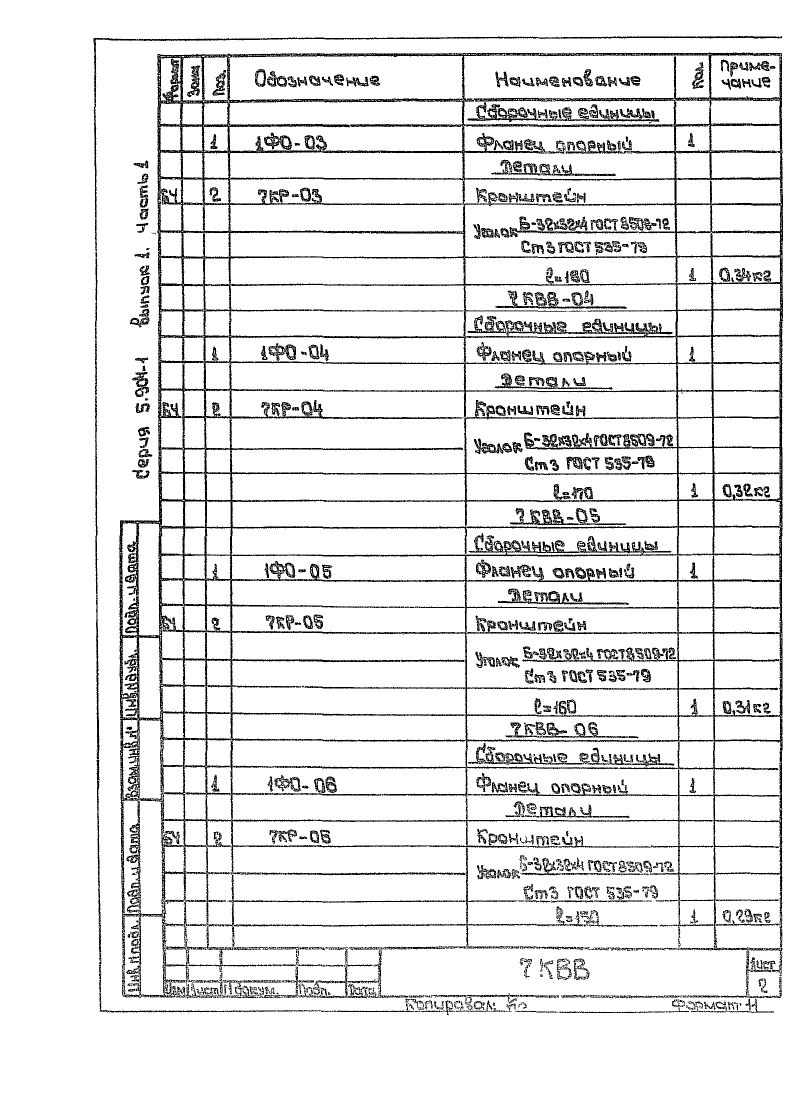 Формат Зона Поз. Обозначение Наименование Кол. Приме-
чание
Сборочные единицы
1 1ФО-03 Фланец опорный 1
Детали
БЧ 2 7КР-03 Кронштейн
Уголок Б-32х32х4 ГОСТ 8509-72
Ст3 ГОСТ 535-79
ℓ=180 1 0,34кг
7КВВ-04
Сборочные единицы
1 1ФО-04 Фланец опорный 1
Детали
БЧ 2 7КР-04 Кронштейн
Уголок Б-32х32х4 ГОСТ 8509-72
Ст3 ГОСТ 535-79
ℓ=170 1 0,32кг
7КВВ-05
Сборочные единицы
1 1ФО-05 Фланец опорный 1
Детали
БЧ 2 7КР-05 Кронштейн
Уголок Б-32х32х4 ГОСТ 8509-72
Ст3 ГОСТ 535-79
ℓ=160 1 0,31кг
7КВВ-06
Сборочные единицы
1 1ФО-06 Фланец опорный 1
Детали
БЧ 2 7КР-06 Кронштейн
Уголок Б-32х32х4 ГОСТ 8509-72
Ст3 ГОСТ 535-79
ℓ=150 1 0,29кг
7КВВ
Лист
2
Изм Лист N докум. Подп. Дата
Копировал:
Формат 11
Серия 5.904-1 Выпуск 1. Часть 1
Подп. и дата
Взам.инв.N
Подп. и дата
Инв N подл